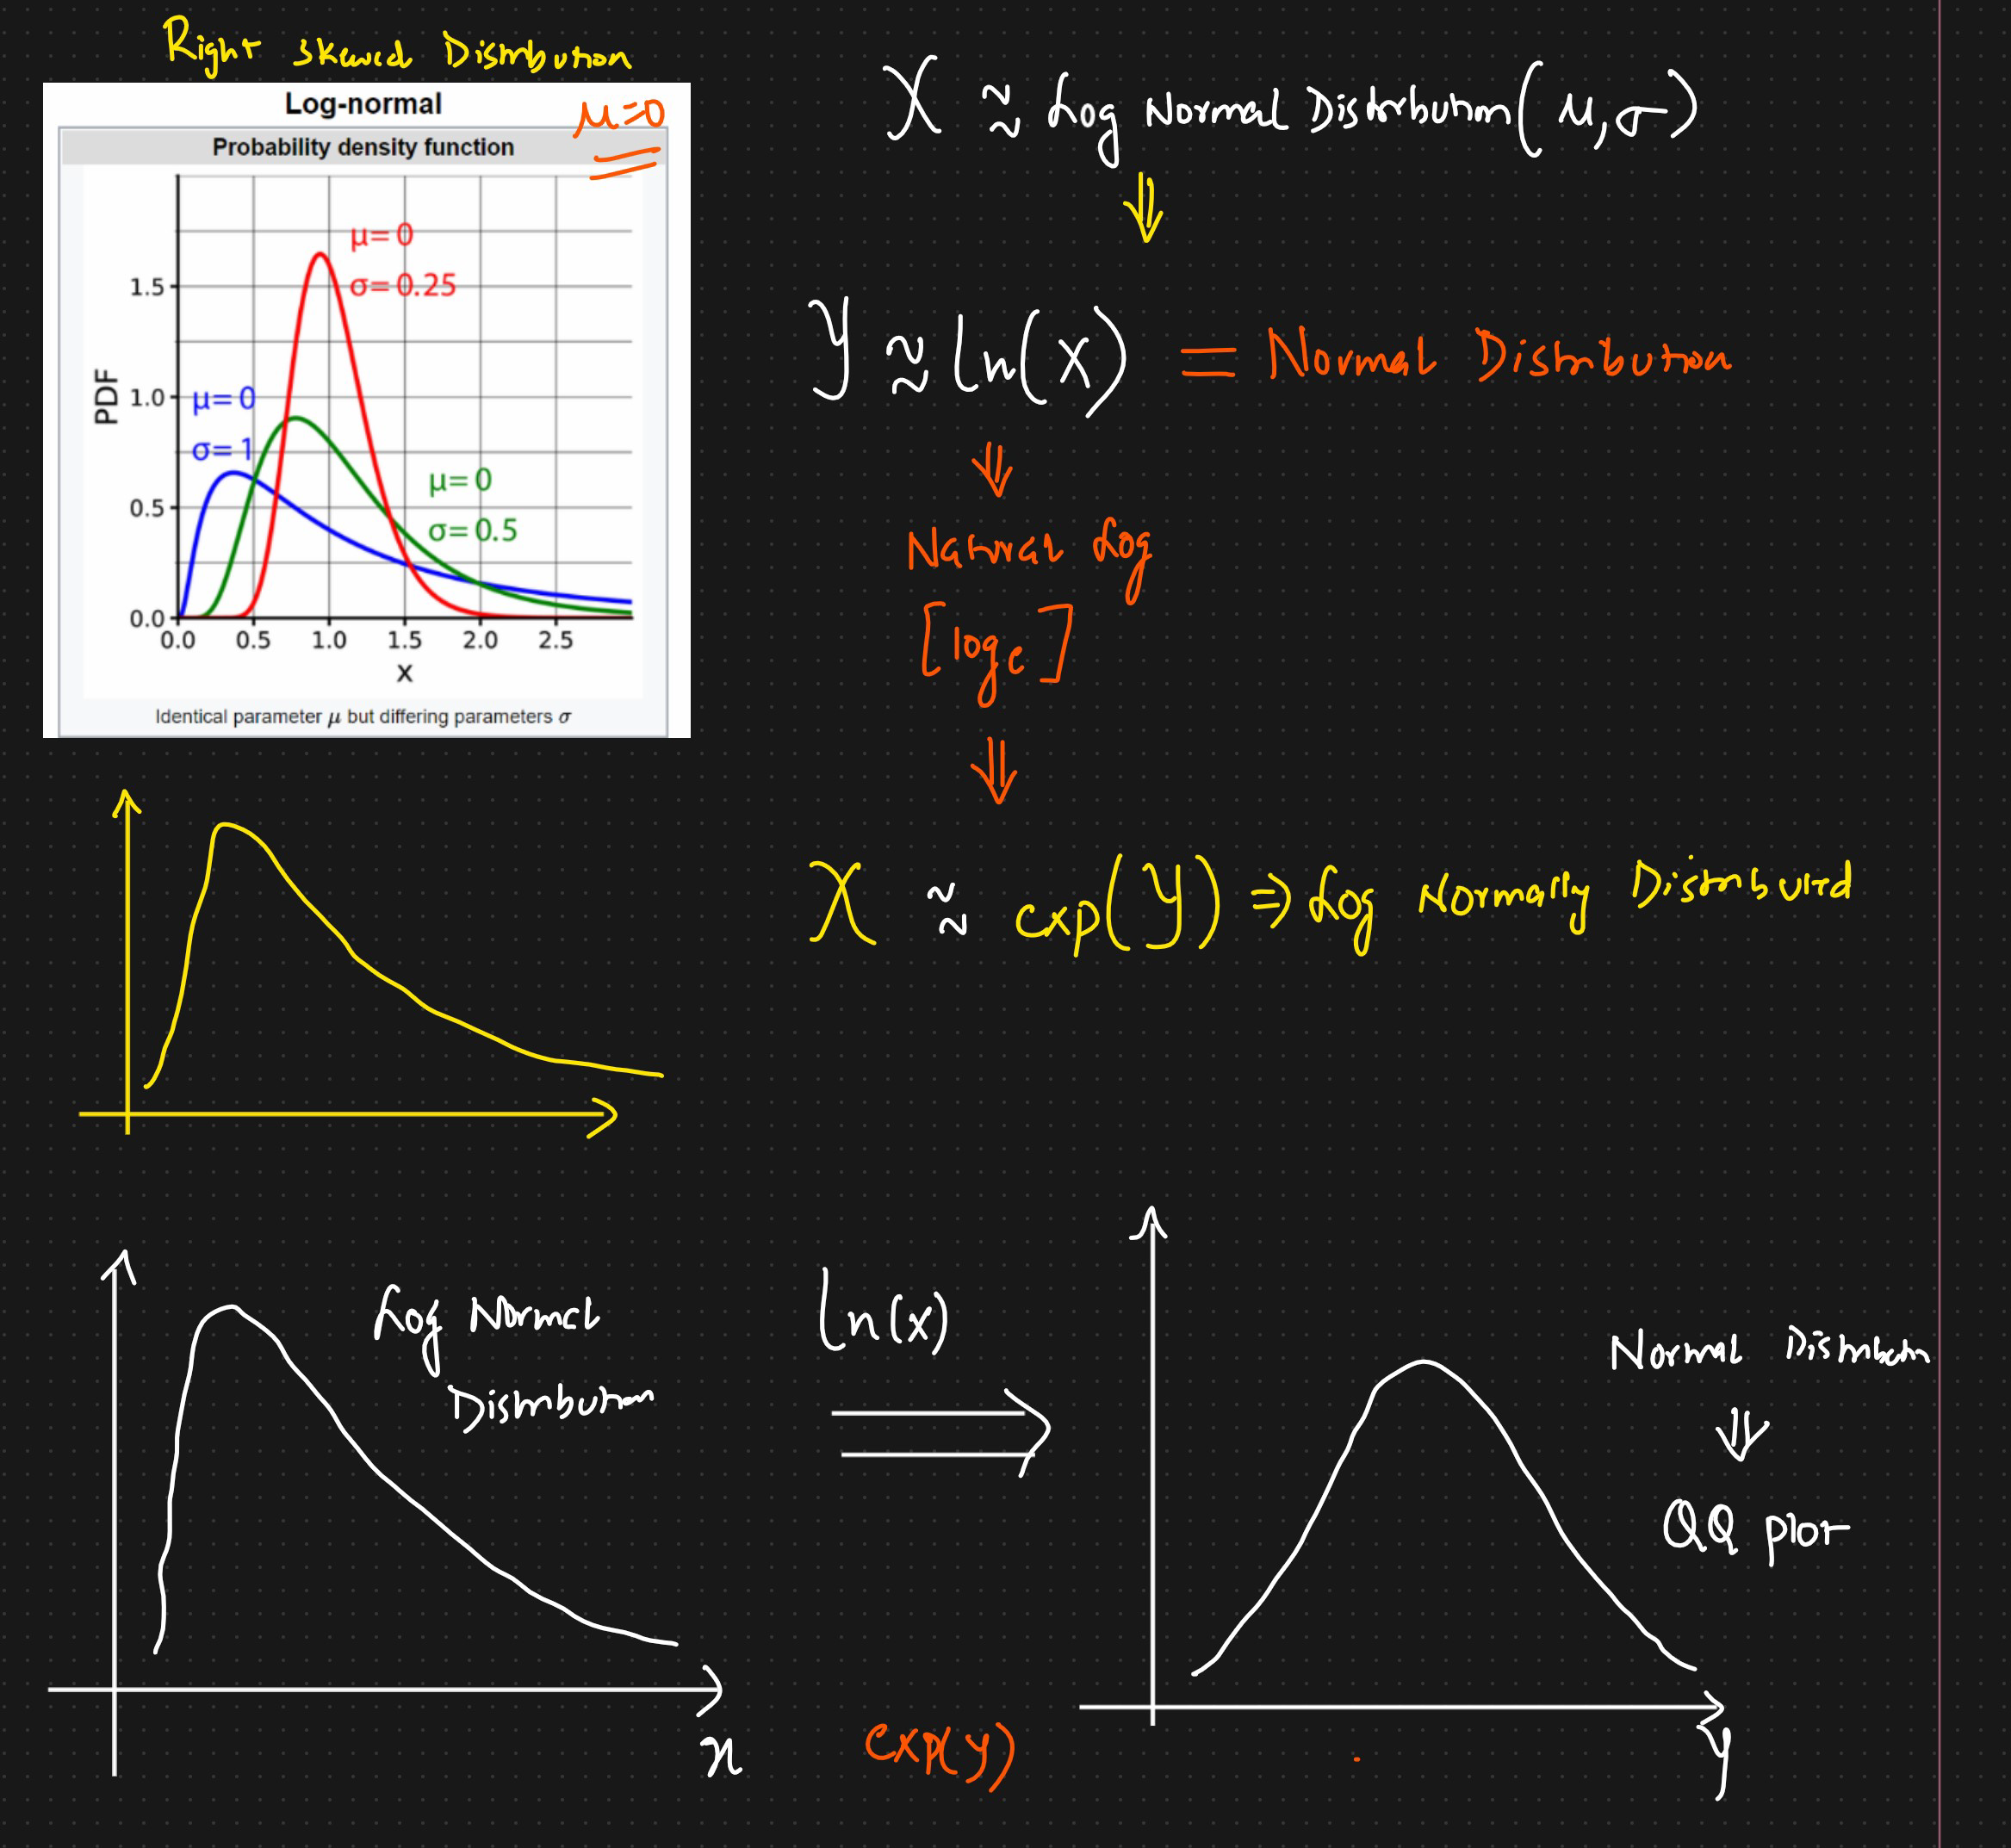 Right skewed Distribution
Log-normal
μ=0
Probability density function
μ=0
σ=0.25
μ=0
σ=1
μ=0
σ=0.5
PDF
1.5
1.0
0.5
0.0
0.0 0.5 1.0 1.5 2.0 2.5
x
Identical parameter μ but differing parameters σ
X ≈ Log Normal Distribution (μ, σ)
⇓
Y ≈ ln(x) = Normal Distribution
⇓
Natural Log
[loge]
⇓
X ≈ exp(Y) ⇒ Log Normally Distributed
Log Normal
Distribution
x
ln(x)
⇒
exp(y)
Normal Distribution
⇓
QQ plot
y